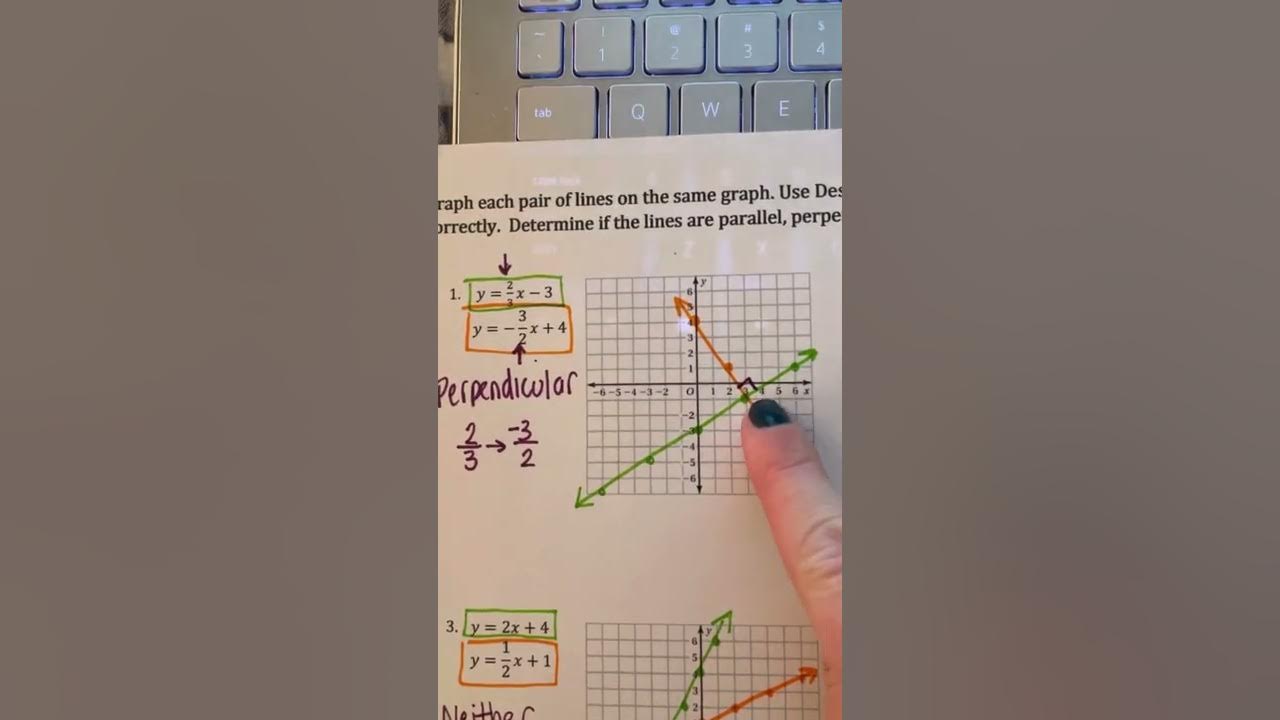 ~ ! @ # $
` 1 2 3 4
tab Q W E
raph each pair of lines on the same graph. Use Des
orrectly. Determine if the lines are parallel, perpe
1. y = 2/3 x − 3
y = −3/2 x + 4
Perpendicular
2/3 → −3/2
y
6
5
4
3
2
1
−6 −5 −4 −3 −2 O 1 2 3 4 5 6 x
−2
−3
−4
−5
−6
3. y = 2x + 4
y = 1/2 x + 1
Neither
y
6
5
3
2